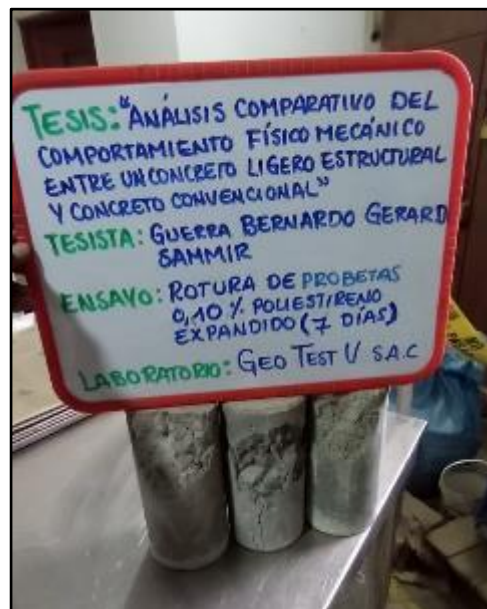 TESIS: "ANÁLISIS COMPARATIVO DEL
COMPORTAMIENTO FÍSICO MECÁNICO
ENTRE UN CONCRETO LIGERO ESTRUCTURAL
Y CONCRETO CONVENCIONAL"
TESISTA: GUERRA BERNARDO GERARD
SAMMIR
ENSAYO: ROTURA DE PROBETAS
0,10 % POLIESTIRENO
EXPANDIDO (7 DÍAS)
LABORATORIO: GEO TEST V S.A.C